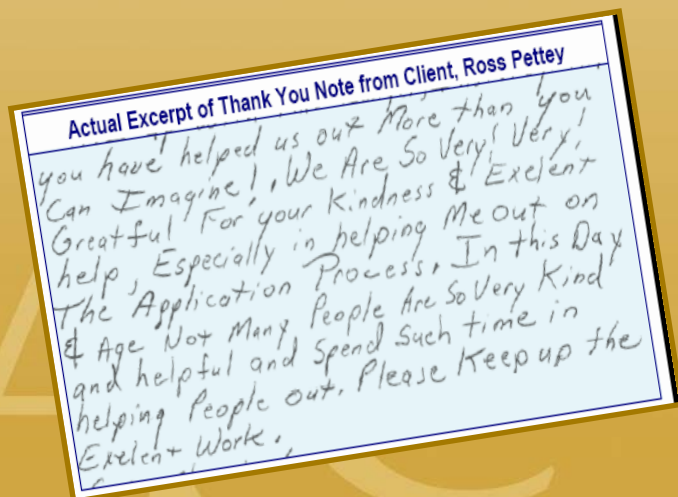 Actual Excerpt of Thank You Note from Client, Ross Pettey
you have helped us out More than you
Can Imagine!, We Are So Very! Very!
Greatful For your Kindness & Exelent
help, Especially in helping Me Out on
The Application Process. In this Day
& Age Not Many People Are So Very Kind
and helpful and Spend Such time in
helping People out. Please Keep up the
Exelent Work.